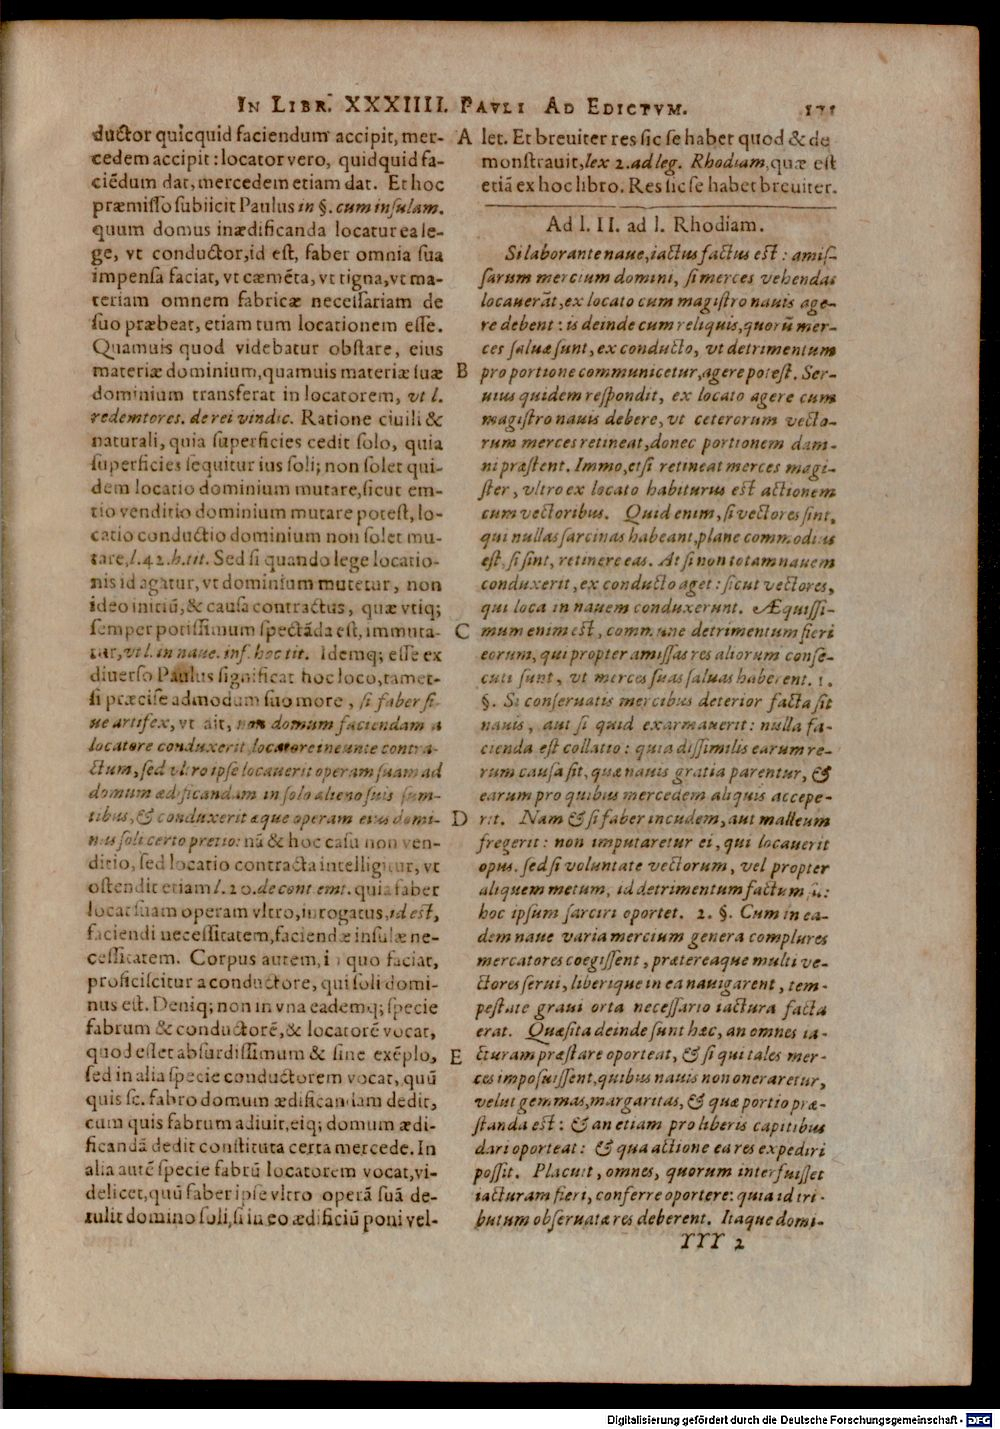 IN LIBR. XXXIIII. PAVLI AD EDICTVM.
ductor quicquid faciendum accipit, mer-
cedem accipit: locator vero, quidquid fa-
ciẽdum dat, mercedem etiam dat. Et hoc
præmisso subiicit Paulus in §. cum insulam.
quum domus inædificanda locatur ea le-
ge, vt conductor, id est, faber omnia sua
impensa faciat, vt cæmẽta, vt tigna, vt ma-
teriam omnem fabricæ necessariam de
suo præbeat, etiam tum locationem esse.
Quamuis quod videbatur obstare, eius
materiæ dominium, quamuis materiæ suæ
dominium transferat in locatorem, vt l.
redemtores. de rei vindic. Ratione ciuili &
naturali, quia superficies cedit solo, quia
superficies sequitur ius soli; non solet qui-
dem locatio dominium mutare, sicut em-
tio venditio dominium mutare potest, lo-
catio conductio dominium non solet mu-
tare, l. 42. h. tit. Sed si quando lege locatio-
nis id agatur, vt dominium mutetur, non
ideo initiũ, & causa contractus, quæ vtiq;
semper potissimum spectãda est, immuta-
tur, vt l. in naue. inf. hoc tit. Idemq; esse ex
diuerso Paulus significat hoc loco, tamet-
si præcise admodum suo more, si faber si-
ue artifex, vt ait, non domum faciendam a
locatore conduxerit locatore ineunte contra-
ctum, sed vltro ipse locauerit operam suam ad
domum ædificandam in solo alieno suis sum-
tibus, & conduxerit æque operam eius domi-
nus soli certo pretio: nã & hoc casu non ven-
ditio, sed locatio contracta intelligitur, vt
ostendit etiam l. 20. de cont. emt. quia faber
locat suam operam vltro, inrogatus, id est,
faciendi necessitatem, faciendæ insulæ ne-
cessitatem. Corpus autem, in quo faciat,
proficiscitur a conductore, qui soli domi-
nus est. Deniq; non in vna eademq; specie
fabrum & conductorẽ, & locatorẽ vocat,
quod esset absurdissimum & sine exẽplo,
sed in alia specie conductorem vocat, quũ
quis sc. fabro domum ædificandam dedit,
cum quis fabrum adiuit, eiq; domum ædi-
ficandã dedit constituta certa mercede. In
alia autẽ specie fabrũ locatorem vocat, vi-
delicet, quũ faber ipse vltro operã suã de-
tulit domino soli, si in eo ædificiũ poni vel-
A let. Et breuiter res sic se habet quod & de
monstrauit, lex 2. ad leg. Rhodiam, quæ est
etiã ex hoc libro. Res sic se habet breuiter.
Ad l. II. ad l. Rhodiam.
Si laborante naue, iactus factus est: amis-
sarum mercium domini, si merces vehendas
locauerãt, ex locato cum magistro nauis age-
re debent: is deinde cum reliquis, quorũ mer-
ces saluæ sunt, ex conducto, vt detrimentum
B pro portione communicetur, agere potest. Ser-
uius quidem respondit, ex locato agere cum
magistro nauis debere, vt ceterorum vecto-
rum merces retineat, donec portionem dam-
ni præstent. Immo, etsi retineat merces magi-
ster, vltro ex locato habiturus est actionem
cum vectoribus. Quid enim, si vectores sint,
qui nullas sarcinas habeant, plane commodius
est, si sint, retinere eas. At si non totam nauem
conduxerit, ex conducto aget: sicut vectores,
qui loca in nauem conduxerunt. Æquissi-
C mum enim est, commune detrimentum fieri
eorum, qui propter amissas res aliorum conse-
cuti sunt, vt merces suas saluas haberent. 1.
§. Si conseruatis mercibus deterior facta sit
nauis, aut si quid exarmauerit: nulla fa-
cienda est collatio: quia dissimilis earum re-
rum causa sit, quæ nauis gratia parentur, &
earum pro quibus mercedem aliquis accepe-
D rit. Nam & si faber incudem, aut malleum
fregerit: non imputaretur ei, qui locauerit
opus. sed si voluntate vectorum, vel propter
aliquem metum, id detrimentum factum sit:
hoc ipsum sarciri oportet. 2. §. Cum in ea-
dem naue varia mercium genera complures
mercatores coegissent, prætereaque multi ve-
ctores serui, liberique in ea nauigarent, tem-
pestate graui orta necessario iactura facta
erat. Quæsita deinde sunt hæc, an omnes ia-
E cturam præstare oporteat, & si qui tales mer-
ces imposuissent, quibus nauis non oneraretur,
velut gemmas, margaritas, & quæ portio præ-
standa est: & an etiam pro liberis capitibus
dari oporteat: & qua actione ea res expediri
possit. Placuit, omnes, quorum interfuisset
iacturam fieri, conferre oportere: quia id tri-
butum obseruatæ res deberent. Itaque domi-
YYY 2
Digitalisierung gefördert durch die Deutsche Forschungsgemeinschaft - DFG